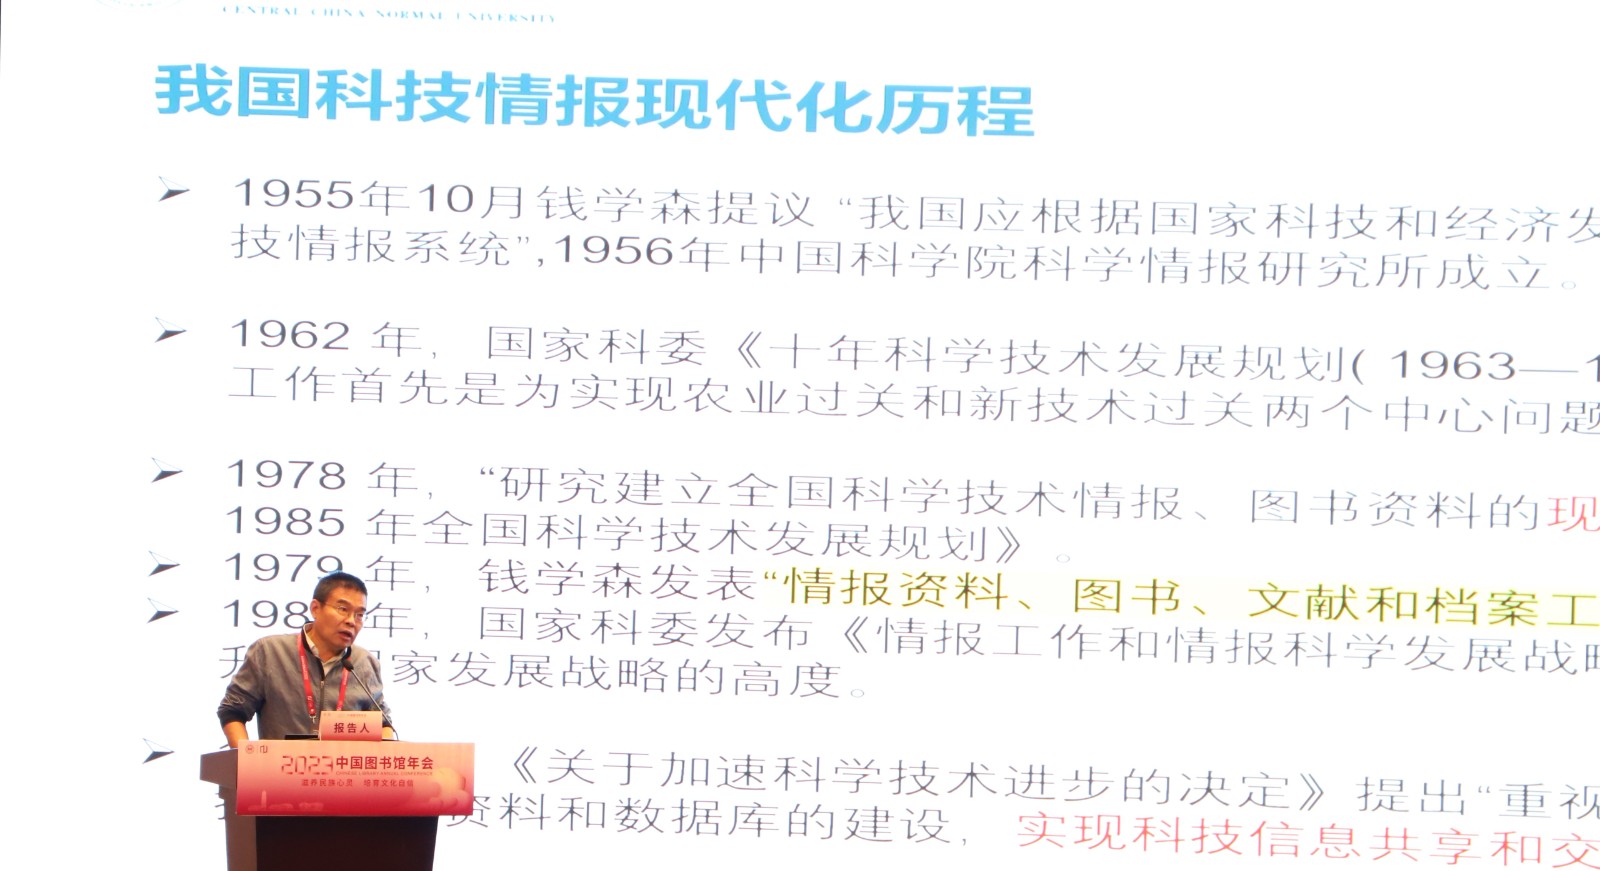 CENTRAL CHINA NORMAL UNIVERSITY
我国科技情报现代化历程
1955年10月钱学森提议“我国应根据国家科技和经济发
技情报系统”,1956年中国科学院科学情报研究所成立。
1962 年，国家科委《十年科学技术发展规划( 1963—1
工作首先是为实现农业过关和新技术过关两个中心问题
1978 年，“研究建立全国科学技术情报、图书资料的现
1985 年全国科学技术发展规划》。
1979 年，钱学森发表“情报资料、图书、文献和档案工
198 年，国家科委发布《情报工作和情报科学发展战略
家发展战略的高度。
《关于加速科学技术进步的决定》提出“重视
资料和数据库的建设，实现科技信息共享和交
报告人
2023中国图书馆年会
CHINESE LIBRARY ANNUAL CONFERENCE
滋养民族心灵 培育文化自信